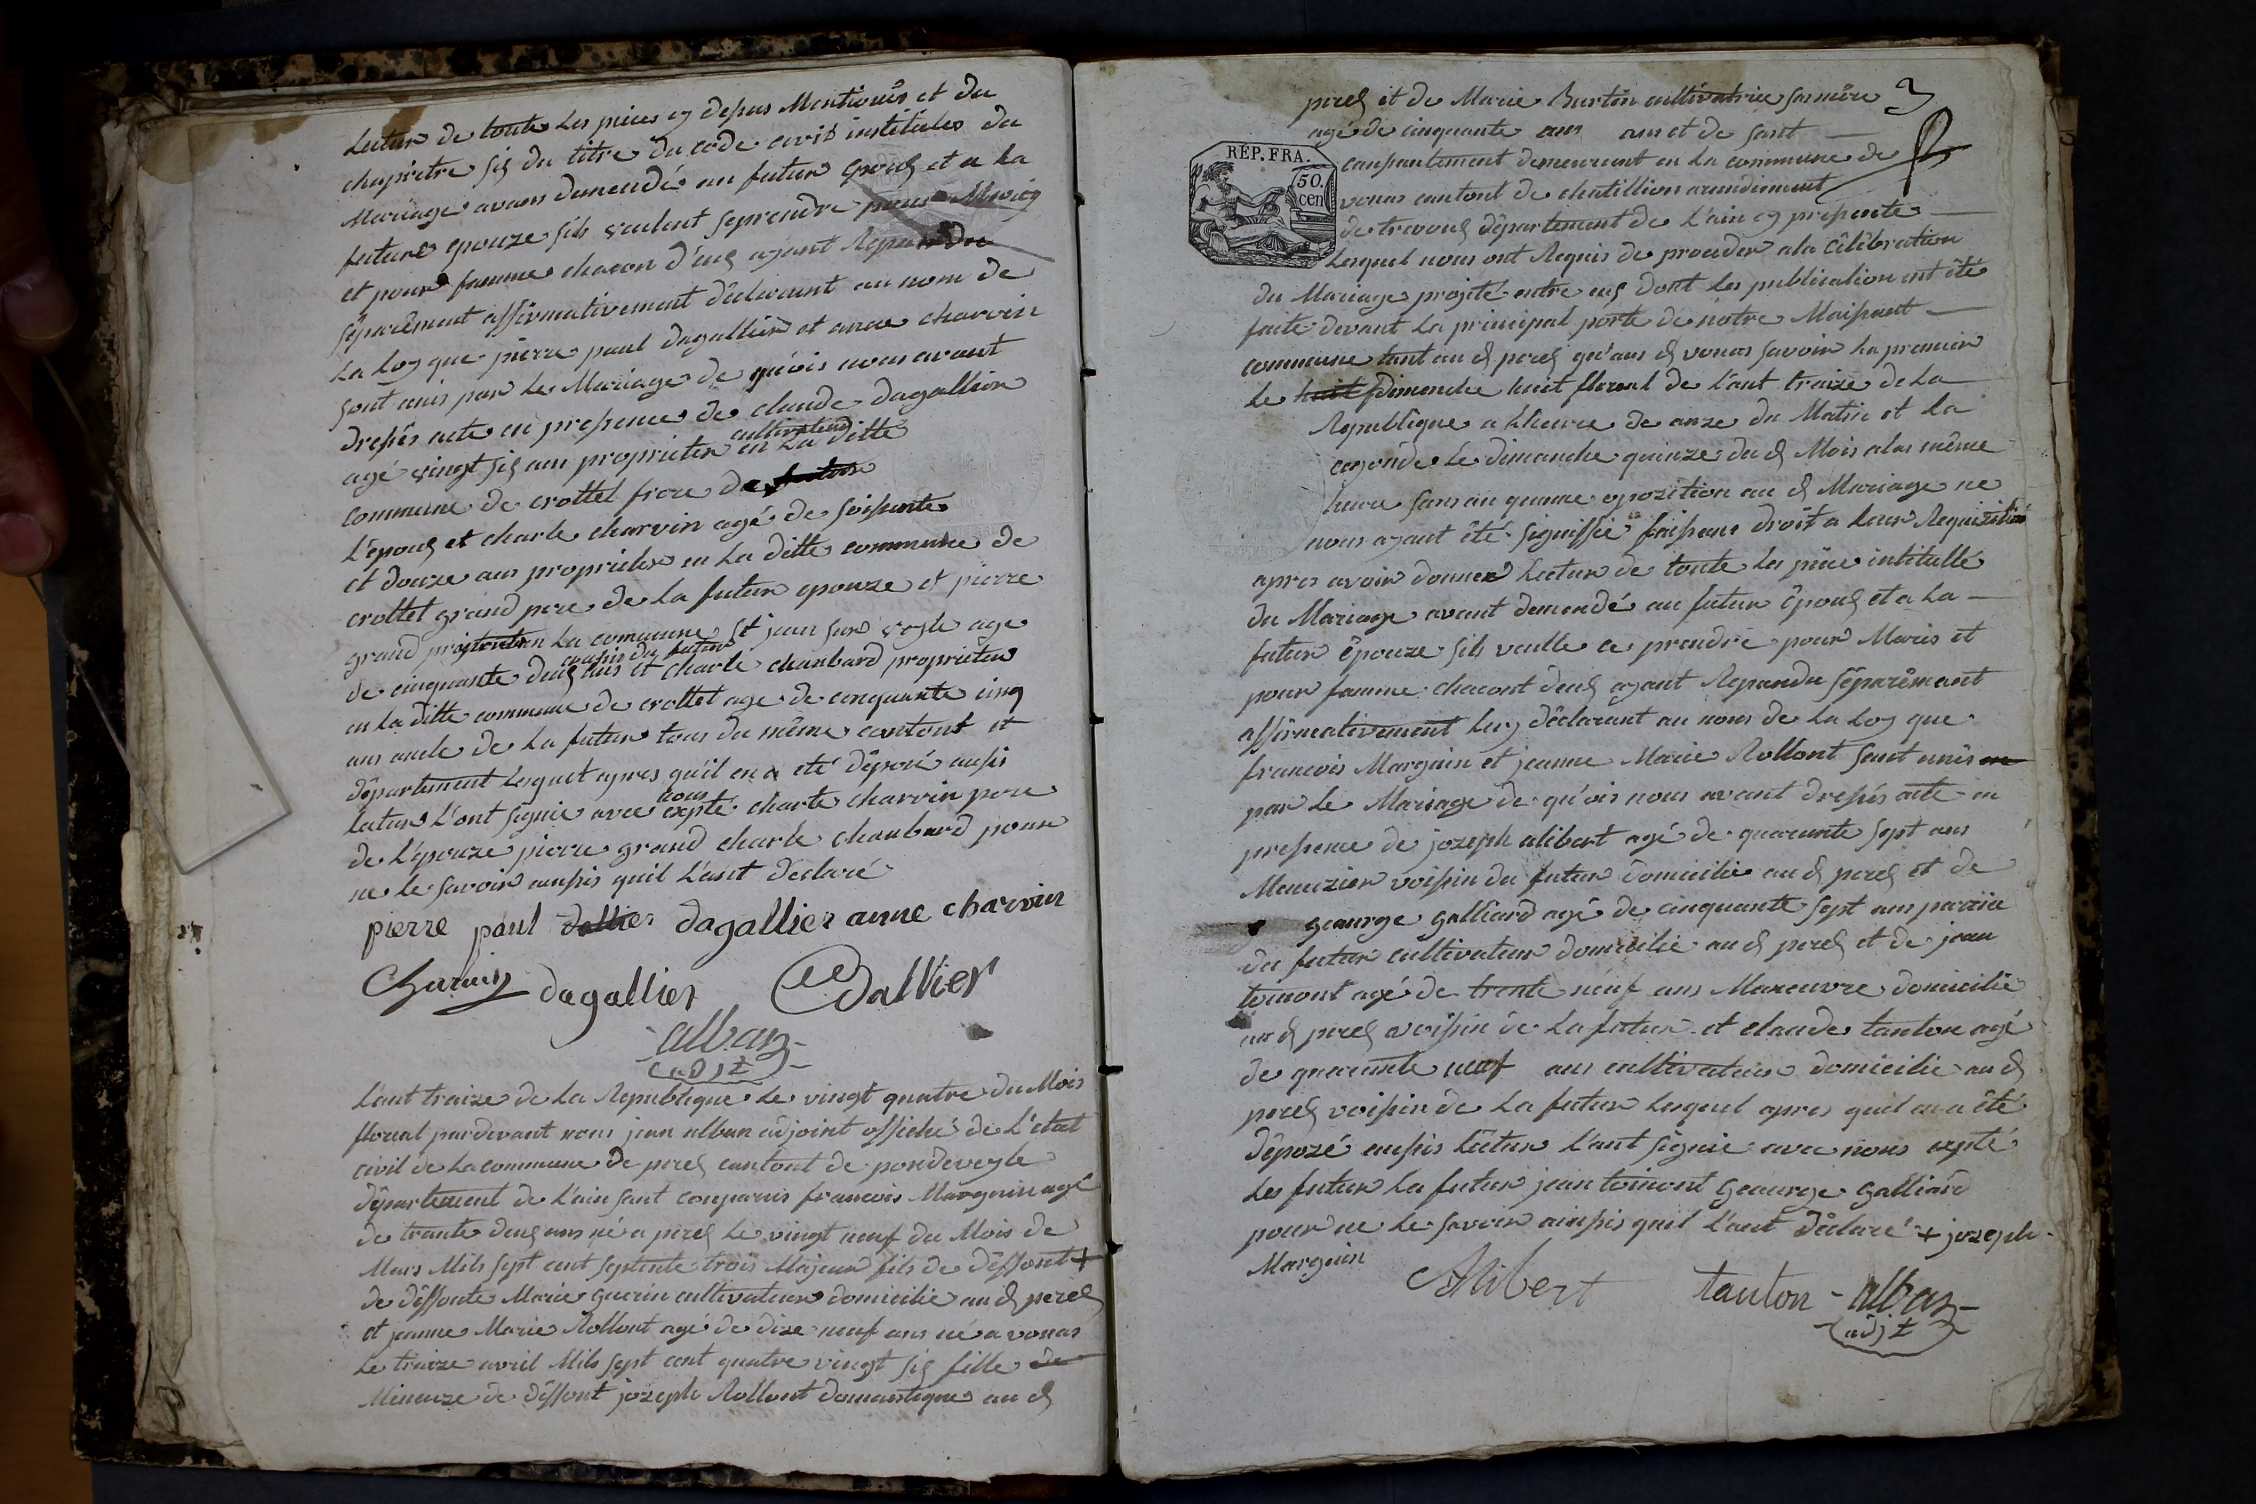 lectur de toute les pieces cy depus Mentionés et du
chapitre six du titre du code civil institules du
Mariage avons demendé au futur epoux et a la
future epouze sils veulent se prendre pour Maris
et pour famme chacon d'eux ayant Repandu
séparément affirmativement declarant au nom de
La Loy que pierre paul dagallier et anne charvin
sont unis par le Mariage de quois nous avant
dressés acte en presence de claude dagallier
cultivateur
agé vingt six ans proprieter en la ditte
commune de crottet frere de futur
L'epoux et charle charvin agé de soisente
et douze ans proprieter en La ditte commune de
crottet grand pere de La futur epouze et pierre
grand proprieter en La commune St jean sur veyle age
cousin du futur
de cinquante deux ans et charle chanbard proprieter
en la ditte commune de crottet age de cinquante cinq
ans oncle de La futur tous du même cantont et
département Lesquet apres qu'il en a eté déposé ausis
nous
lectur L'ont signie avec expté charle charvin pere
de L'epouze pierre grand charle chanbard pour
ne le savoir ainsis quil L'ant declaré
pierre paul dallier dagallier anne charvin
Charvin dagallier Dallier
alban
adjt
L'ant traize de La Republique Le vingt quatre du Mois
floreal pardevant nous jean alban adjoint officié de L'état
civil de La commune de perex cantont de pondeveyle
département de L'ain sant conparuis francois Marguin agé
de trante deux ans né a perex Le vingt neuf du Mois de
Mars Mils sept cent septente trois Majeur fils de déffont +
de déffonte Marie guerin cultivateur domicilie au d perex
et jeanne Marie Rollont agé de dize neuf ans né a vonas
Le traize avril Mils sept cent quatre vingt six fille de
Mineuze de déffont jozeph Rollont domantique au d
3
perex et de Marie Burtin cultivatrice sa mère
agé de cinquante ans ans et de sont
REP. FRA.
50.
cen
conpantement demeurant en La commune de
vonas cantont de chatillion arondiment
de trevoux département de L'ain cy presente
Lesquel nous ont Requis de proceder a la célébration
du Mariage projeté entre eux dont Les publication ont été
faite devant La principal porte de notre Maisont
commune tant au d perex qu'aus d vonas savoir La premier
Le huit dimenche huit floreal de L'ant traize de La
Republique a L'heure de onze du Matin et La
cegonde Le dimanche quinze du d Mois alas même
heure sans au quune opozition au d Mariage ne
nous ayant été signiffié faisans droit a Leur Requizition
apres avoir donner Lectur de toute Les piece intitullé
du Mariage avant demendé au futur époux et a La
futur épouze sils veulle ce prendre pour Maris et
pour famme chacont deux ayant Repandu séparémant
affirmativement Luy déclarant au nom de La Loy que
francois Marguin et jeanne Marie Rollont sont unis en
par Le Mariage de qu'ois nous avant dressés acte en
presence de jozeph alibert agé de quarante sept ans
Menuzier voisin du futur domicilie au d perex et de
geaurge galliard agé de cinquante sept ans parain
du futur cultivateur domicilie au d perex et de jean
toinont agé de trente néuf ans Maneuvre domicilie
au d perex voisin de La futur et claude tanton agé
de quarante neuf ans cultivateur domicilie au d
perex voisin de La futur Lesquel apres quil en a été
dépozé ausis Léctur L'ant signie avec nous expté
Les futur La futur jean toinont geaurge galliard
pour ne Le savoir ainsis quil L'ant déclaré + jozeph
Marguin
Alibert
tanton
alban
adjt